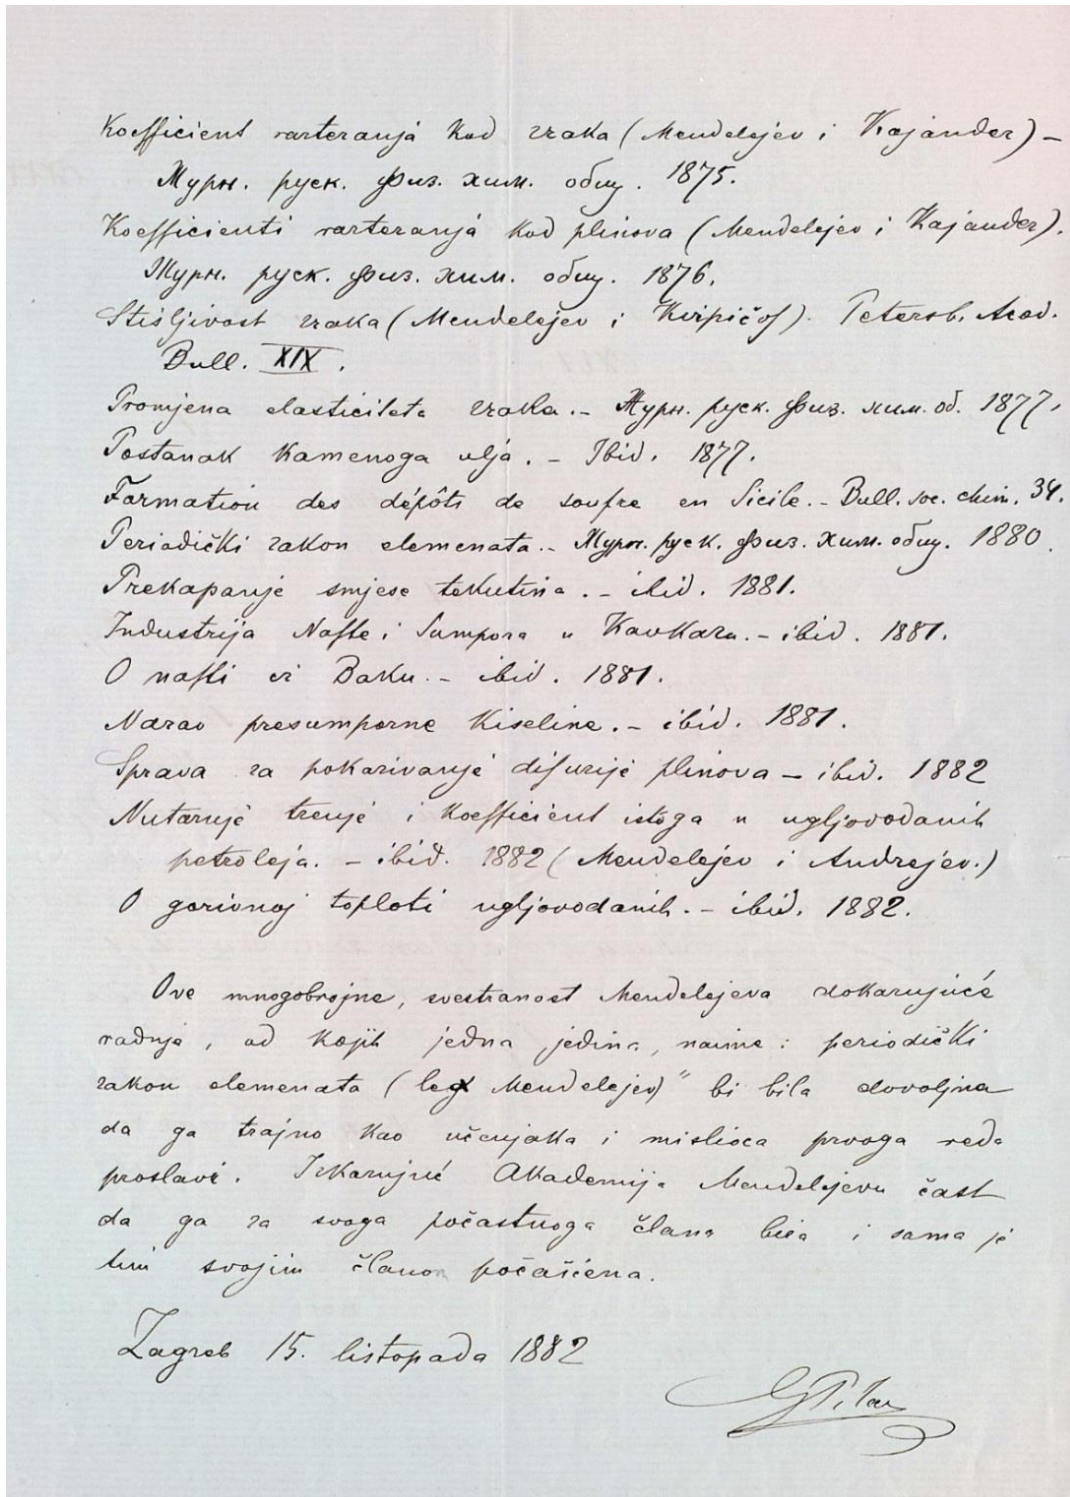 Koefficient raztezanja kod zraka (Mendelejev i Kajander) –
Журн. руск. Физ. хим. общ. 1875.
Koefficienti raztezanja kod plinova (Mendelejev i Kajander).
Журн. руск. Физ. хим. общ. 1876.
Stisljivost zraka (Mendelejev i Kirpičof). Petersb. Acad.
Bull. XIX.
Promjena elasticiteta zraka. – Журн. руск. Физ. хим. об. 1877.
Postanak Kamenoga ulja. – Ibid. 1877.
Formation des dépôts de soufre en Sicile. – Bull. soc. chim. 34.
Periodički zakon elemenata. – Журн. руск. Физ. хим. общ. 1880.
Prekapanje smjese tekutina. – ibid. 1881.
Industrija Nafte i Sumpora u Kavkazu. – ibid. 1881.
O nafti iz Baku. – ibid. 1881.
Narav presumporne Kiseline. – ibid. 1881.
Sprava za pokazivanje difuzije plinova – ibid. 1882
Nutarnje trenje i koefficient istoga u ugljovodanih
petroleja. – ibid. 1882 (Mendelejev i Andrejev.)
O gorivnoj toploti ugljovodanih. – ibid. 1882.
Ove mnogobrojne, svestranost Mendelejeva dokazujuće
radnje, od kojih jedna jedina, naime: periodički
zakon elemenata (lex Mendelejev)" bi bila dovoljna
da ga trajno kao učenjaka i mislioca prvoga reda
proslavi. Izkazujuć Akademija Mendelejevu čast
da ga za svoga počastnoga člana bira i sama je
tim svojim članom počašćena.
Zagreb 15. listopada 1882
G Pilar